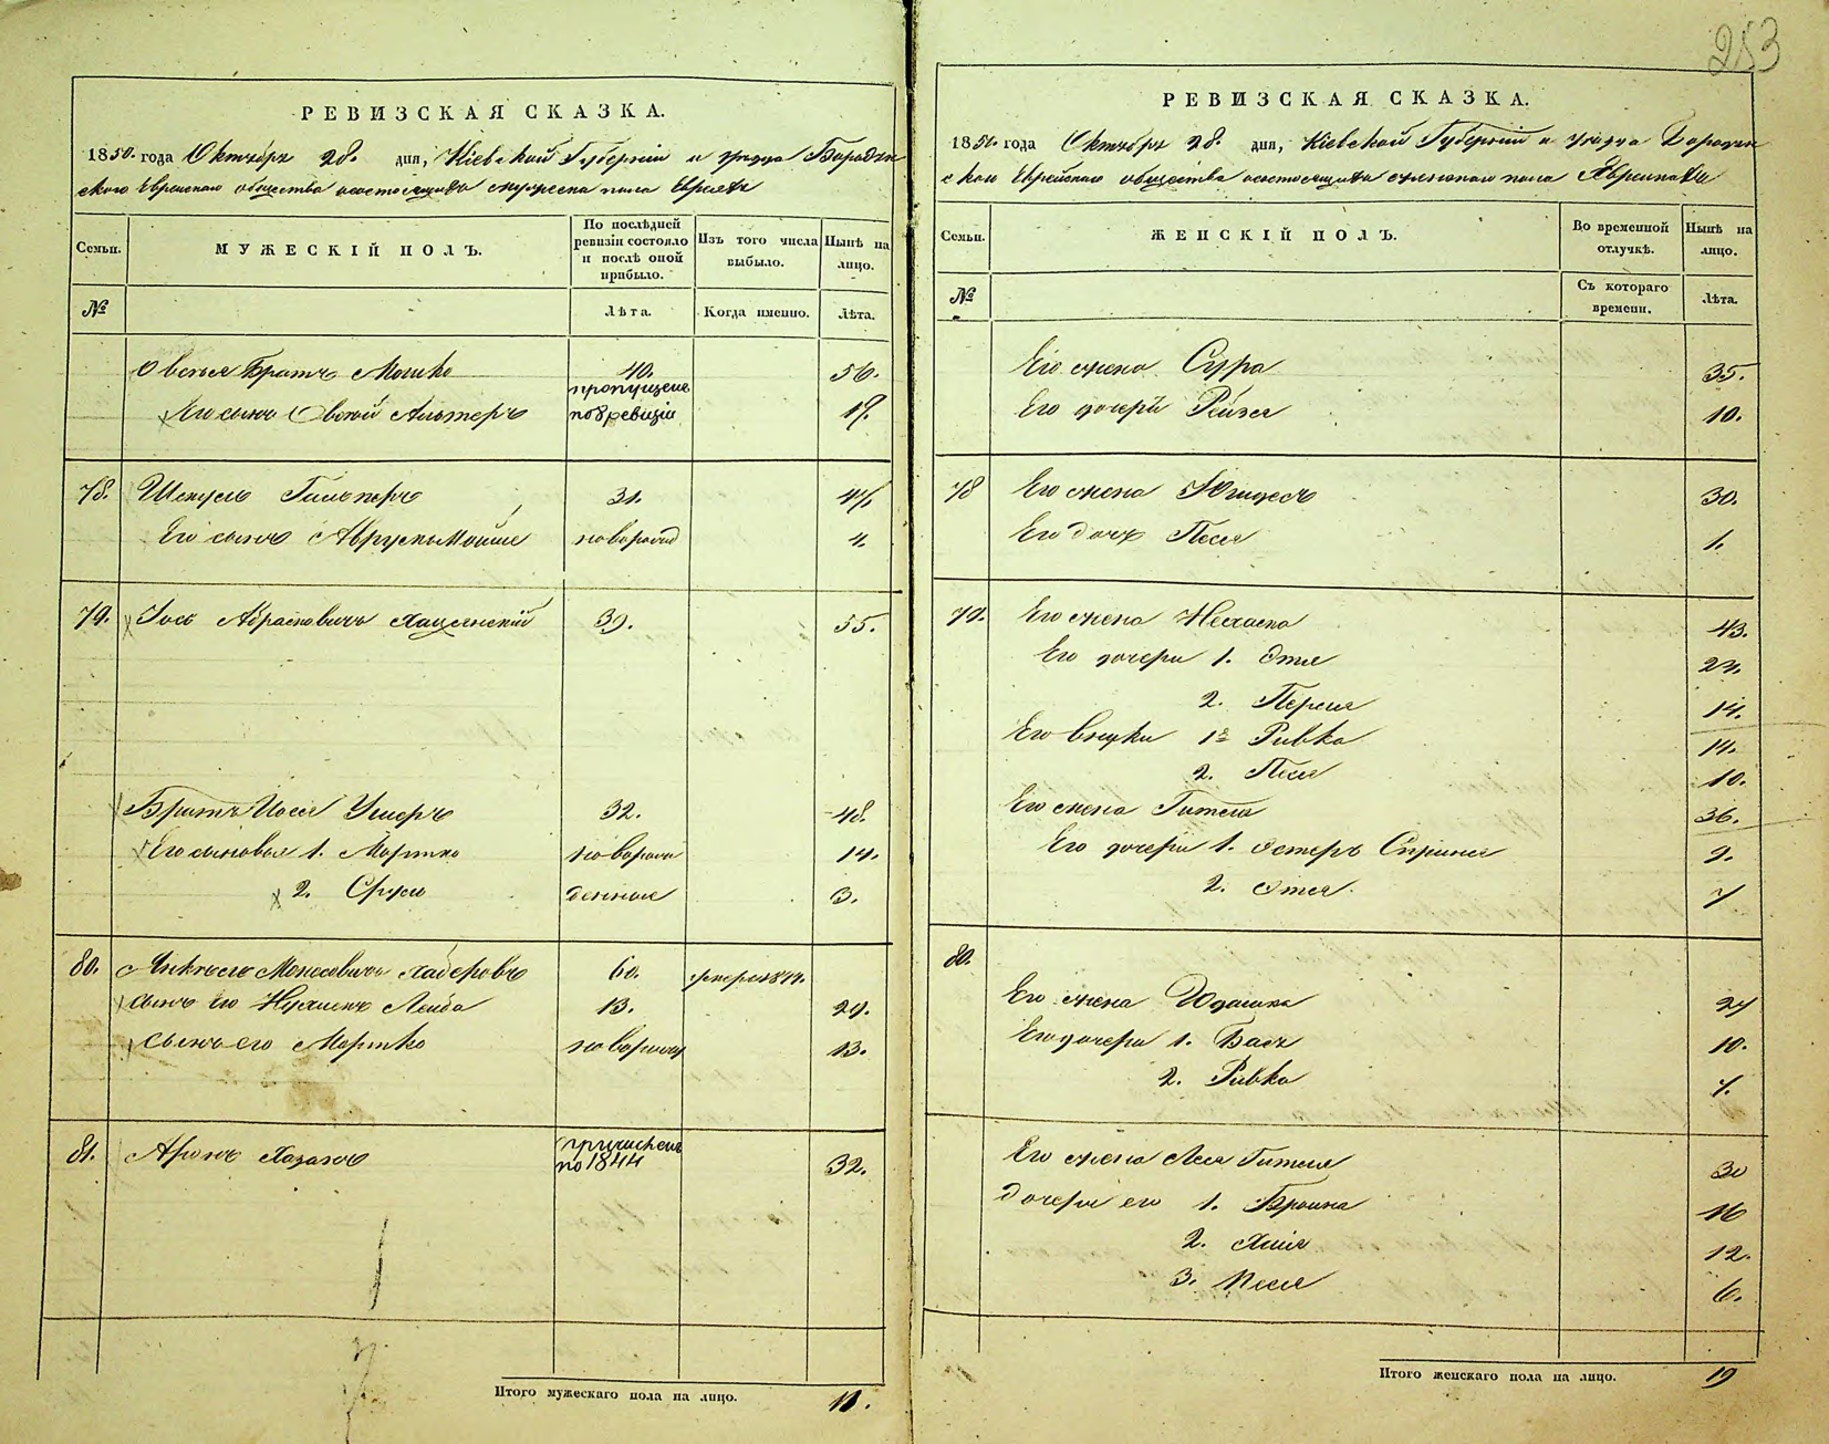 РЕВИЗСКАЯ СКАЗКА.
1850. года Октября 28. дня, Кіевской Губерніи и уезда Бородян
скаго Еврейскаго общества о состоящихъ мужеска пола Евреяхъ
Семьи.
МУЖЕСКІЙ ПОЛЪ.
По послѣдней ревизіи состояло и послѣ оной прибыло.
Изъ того числа выбыло.
Нынѣ на лицо.
№
Лѣта.
Когда именно.
Лѣта.
Овсея Братъ Мошко 40. 56.
Его сынъ Овсей Альтеръ пропущенъ по 8 ревизіи
78. Шмуль Гальперъ 31. 47.
Его сынъ Аврумъ Мойше новорожд 4.
79. Іось Абрамовичъ 39. 55.
Братъ Иося Ушеръ 32. 48.
Его сыновья 1. Мортко новорож 14.
2. Сруль денные 3.
80. Янкель Монесовичъ Хаберовъ 60. умеръ 1844.
сынъ его Нухимъ Лейба 13. 29.
сынъ его Мортко новорожд 13.
81. Аронъ Хазанъ причисленъ по 1844 32.
Итого мужескаго пола на лицо. 11.
253
РЕВИЗСКАЯ СКАЗКА.
1850. года Октября 28. дня, Кіевской Губерніи и уезда Бородян
скаго Еврейскаго общества о состоящихъ женскаго пола Еврейкахъ
Семьи.
ЖЕНСКІЙ ПОЛЪ.
Во временной отлучкѣ.
Нынѣ на лицо.
№
Съ котораго времени.
Лѣта.
Его жена Сура 35.
Его дочерь Рейзя 10.
78 Его жена 30.
Его дочь Песя 1.
79. Его жена Нехама 43.
Его дочери 1. Этля
2. Перля 14.
Его внуки 1я Ривка 14.
2. Песя 10.
Его жена Гитля 36.
Его дочери 1. Эстеръ Спринця 9.
2. Этля 7
80.
Его жена Юдашка 27
Его дочери 1. Бася 10.
2. Ривка 7.
Его жена Лея Гитля 30
дочери его 1. Броина 16
2. Хиля 12.
3. Песя 6.
Итого женскаго пола на лицо. 19